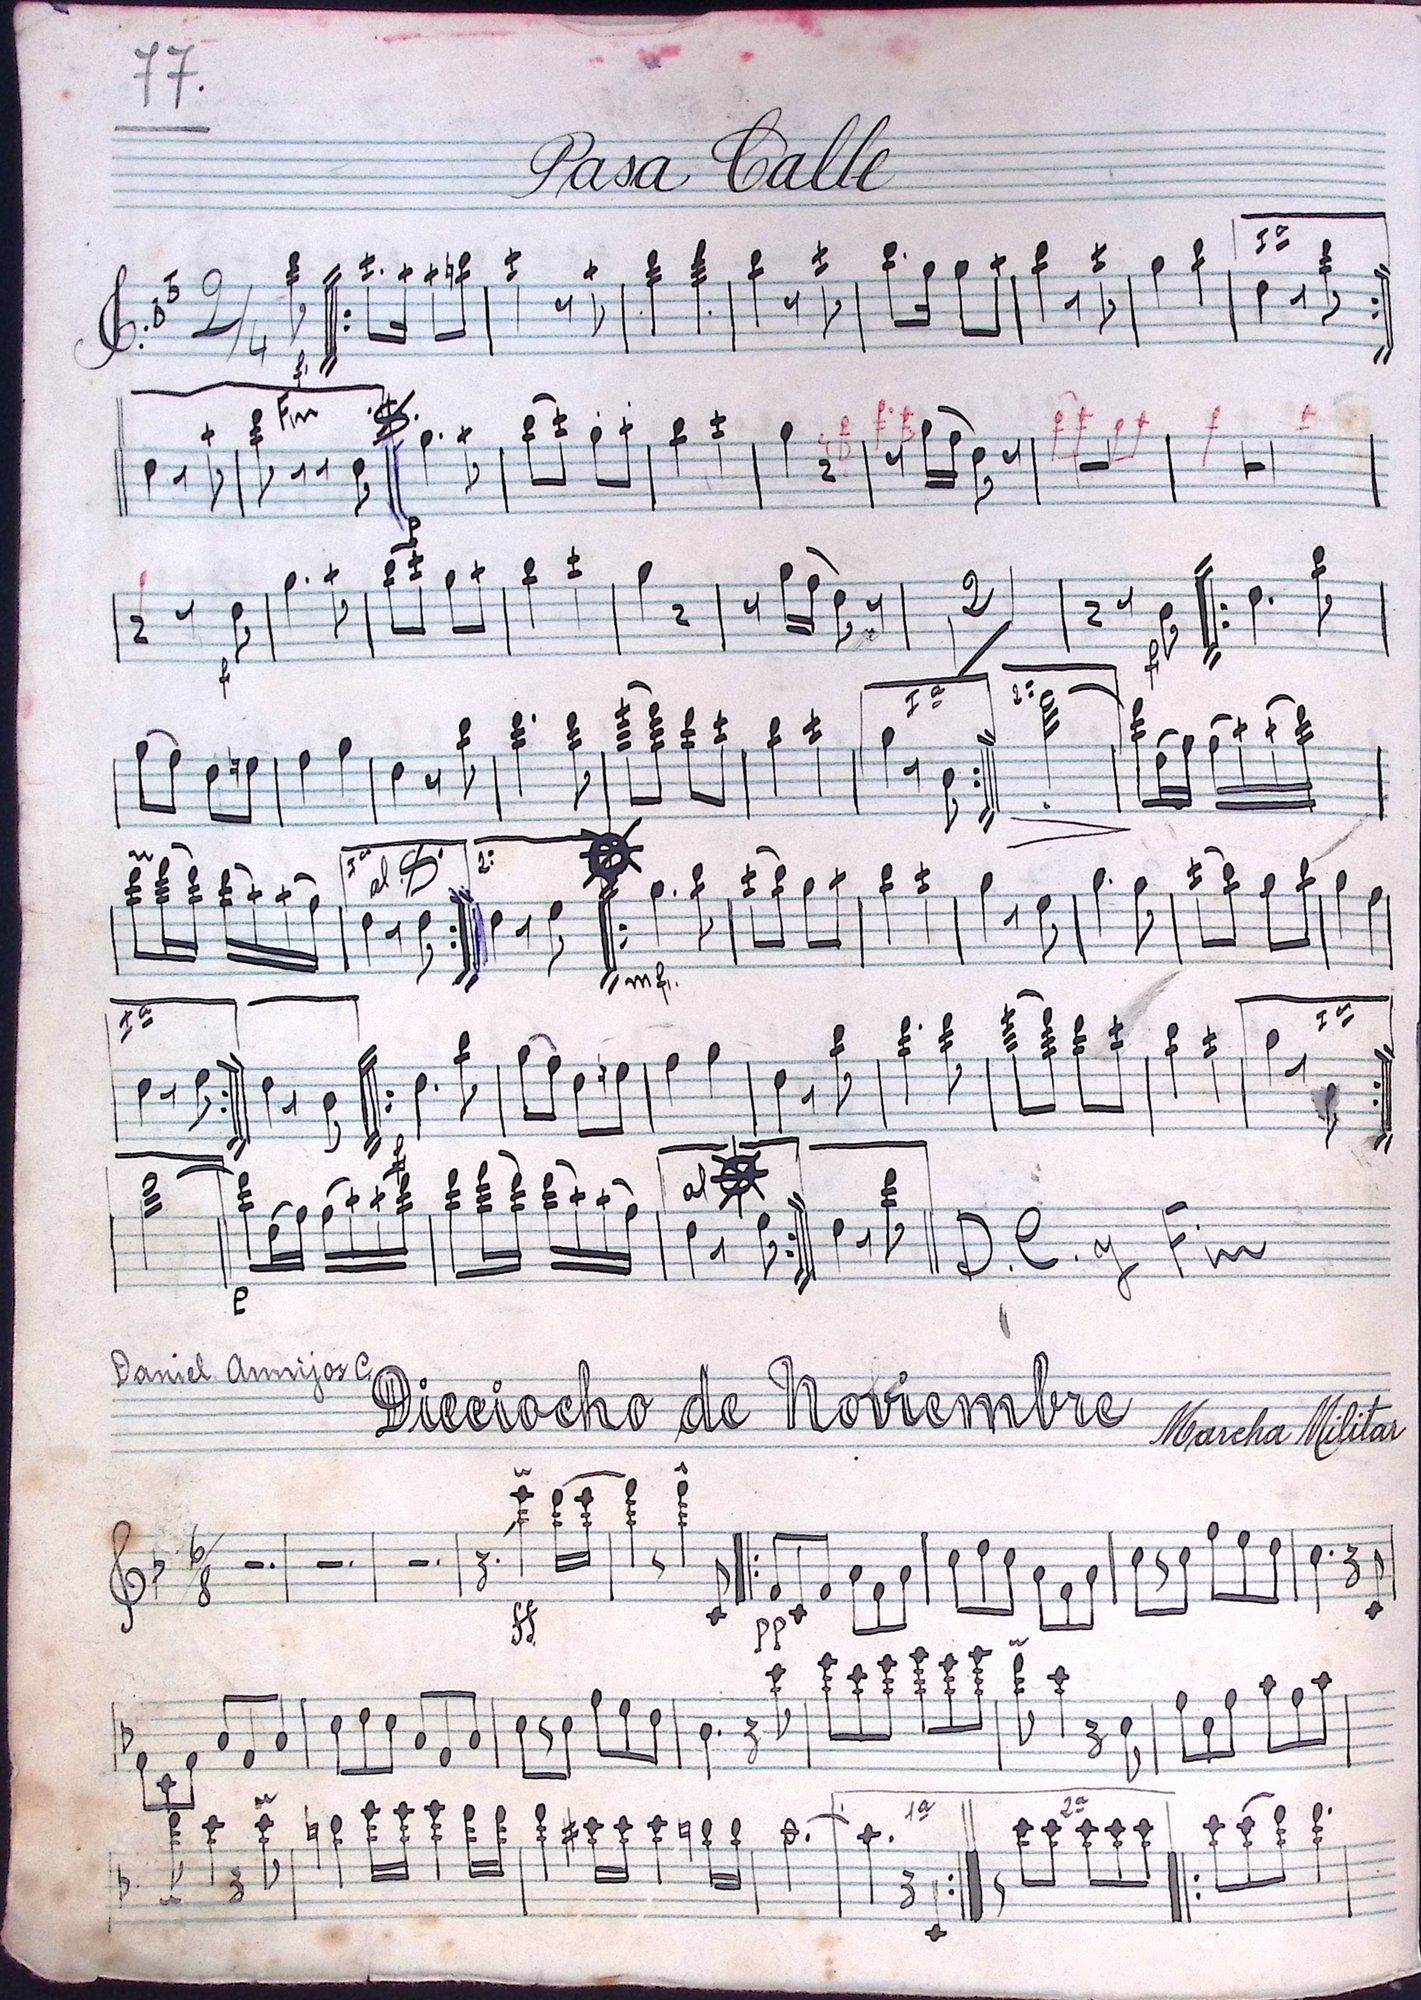 77.
Pasa Calle
2/4
Iª
f.
Fin
p
f
2
f
Iª
2ª
Iª
al
2ª
mf.
Iª
Iª
al
p
D.C. y Fin
Daniel Armijos C.
Dieciocho de Noviembre
Marcha Militar
6/8
ff
pp
1ª
2ª